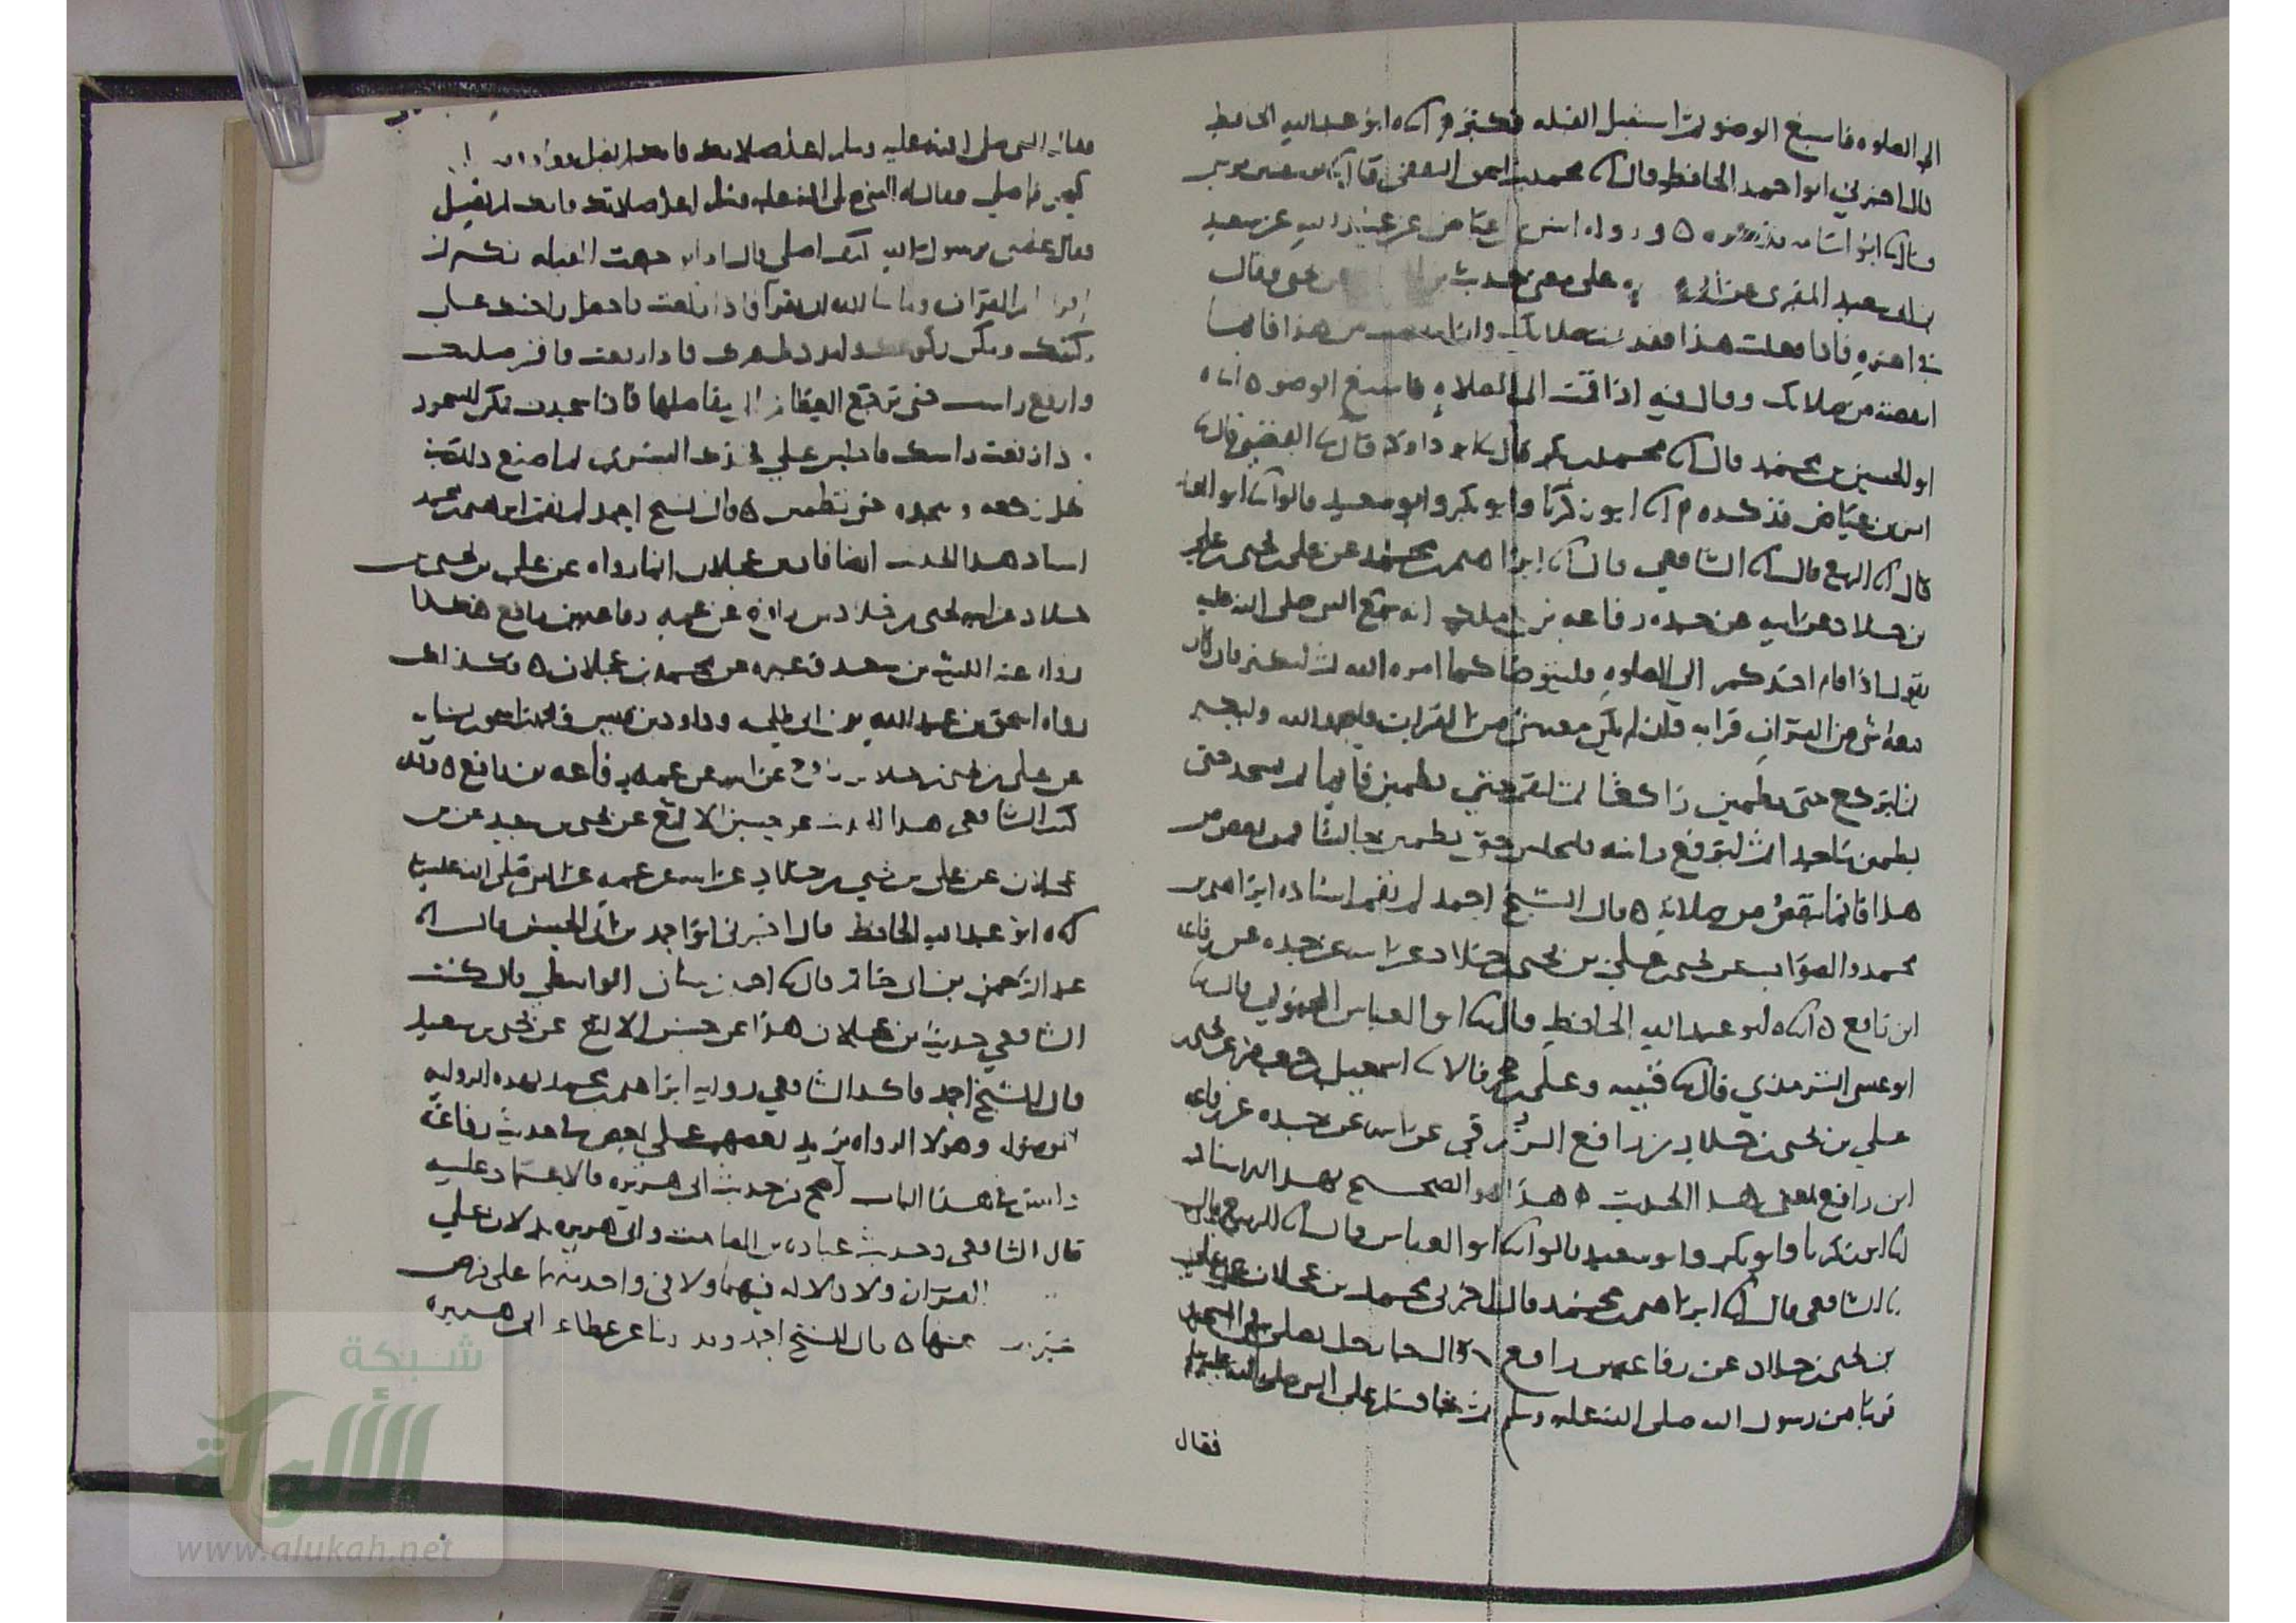 الى الصلوه فاسبغ الوضو ثم استقبل القبله فكبر ابو عبد الله الحافظ
قال اخبرني ابو احمد الحافظ قال محمد بن اسحق الثقفي قال يوسف بن موسى
قال ابو اسامه فذكره ورواه انس بن عياض عن عبيد الله عن سعيد
بن ابي سعيد المقبرى عن ابي على معنى حديث وقال
في اخره فاذا فعلت هذا فقد تمت صلاتك وما انتقصت من هذا فانما
انتقصته من صلاتك وقال فيه اذا قمت الى الصلاه فاسبغ الوضو
ابو الحسين بن محمد قال محمد بن بكر قال ابو داود قال القعنبي قال
انس بن عياض فذكره ابو زكريا وابو بكر وابو سعيد قالوا ابو العباس
قال الربيع قال الشافعي قال ابراهيم بن محمد عن علي بن يحيى بن علي
بن خلاد عن ابيه عن جده رفاعه بن مالك انه سمع النبي صلى الله عليه
يقول اذا قام احدكم الى الصلوه فليتوضا كما امره الله ثم ليكبر فان كان
معه شي من القران قرا به فان لم يكن معه شي من القران فليحمد الله وليكبر
ثم ليركع حتى يطمين راكعا ثم ليقم حتى يطمين قايما ثم يسجد حتى
يطمين ساجدا ثم ليرفع راسه فليجلس حتى يطمين جالسا فمن نقص من
هذا فانما ينقص من صلاته قال الشيخ احمد لم يقم اسناده ابراهيم بن
محمد والصواب عن يحيى بن علي بن يحيى بن خلاد عن ابيه عن جده عن رفاعه
ابن رافع ابو عبد الله الحافظ قال ابو العباس المحبوبي قال
ابو عيسى الترمذي قال قتيبه وعلي بن حجر قالا اسمعيل بن جعفر عن يحيى بن
علي بن يحيى بن خلاد بن رافع الزرقي عن ابيه عن جده عن رفاعه
ابن رافع بمعنى هذا الحديث هذا هو الصحيح بهذا الاسناد
ابو زكريا وابو بكر وابو سعيد قالوا ابو العباس قال الربيع قال
الشافعي قال ابراهيم بن محمد قال اخبرني محمد بن عجلان عن علي
بن يحيى بن خلاد عن رفاعه بن رافع قال جا رجل يصلي في المسجد
قريبا من رسول الله صلى الله عليه وسلم ثم جا فسلم على النبي صلى الله عليه وسلم
فقال
فقال النبي صلى الله عليه وسلم اعد صلاتك فانك لم تصل
فصلى فقال له النبي صلى الله عليه وسلم اعد صلاتك فانك لم تصل
فقال علمني يرسول الله كيف اصلي قال اذا توجهت الى القبله فكبر ثم
اقرا بام القران وما شا الله ان تقرا فاذا ركعت فاجعل راحتيك على
ركبتيك ومكن ركوعك وامدد ظهرك فاذا رفعت فاقم صلبك
وارفع راسك حتى ترجع العظام الى مفاصلها فاذا سجدت فمكن للسجود
فاذا رفعت راسك فاجلس على فخذك اليسرى ثم اصنع ذلك في
كل ركعه وسجده حتى تطمين قال الشيخ احمد لم يقم ابراهيم بن محمد
اسناد هذا الحديث ايضا فان ابن عجلان انما رواه عن علي بن يحيى بن
خلاد عن ابيه يحيى بن خلاد بن رافع عن عمه رفاعه بن رافع هكذا
رواه عنه الليث بن سعد وغيره عن محمد بن عجلان وكذلك
رواه اسحق بن عبد الله بن ابي طلحه وداود بن قيس ومحمد بن اسحق بن يسار
عن علي بن يحيى بن خلاد بن رافع عن ابيه عن عمه رفاعه بن رافع وقد
كتب الشافعي هذا الحديث عن حسين الالثغ عن يحيى بن سعيد عن بن
عجلان عن علي بن يحيى بن خلاد عن ابيه عن عمه عن النبي صلى الله عليه
ابو عبد الله الحافظ قال اخبرني ابو احمد بن ابي الحسن قال
عبد الرحمن بن ابي حاتم قال احمد بن سنان الواسطي قال كتب
الشافعي حديث بن عجلان هذا عن حسين الالثغ عن يحيى بن سعيد
قال الشيخ احمد فاكد الشافعي روايه ابراهيم بن محمد بهذه الروايه
الموصوله وهولا الرواه يزيد بعضهم على بعض في حديث رفاعه
وليس في هذا الباب اصح من حديث ابي هريره فالاعتماد عليه
قال الشافعي وحديث عباده بن الصامت وابي هريره يدلان على
القران ولا دلاله فيهما ولا في واحد منهما على فرض
غيرها قال الشيخ احمد وقد روينا عن عطاء عن ابي هريره
شبكة
الألوكة
www.alukah.net